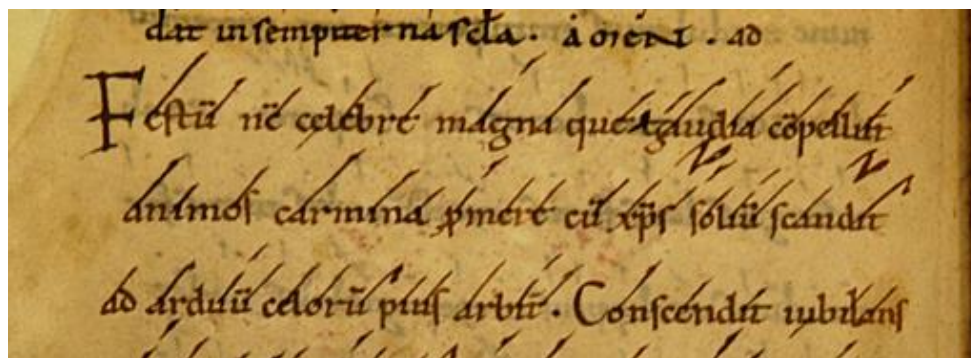 dat in sempiterna sc̄la. amen. ad
Festū nc̄ celebre magna que gaudia cōpellit
animos carmina p̄mere cū xp̄s soliū scandit
ad arduū celorū pius arbit̄. Conscendit iubilans